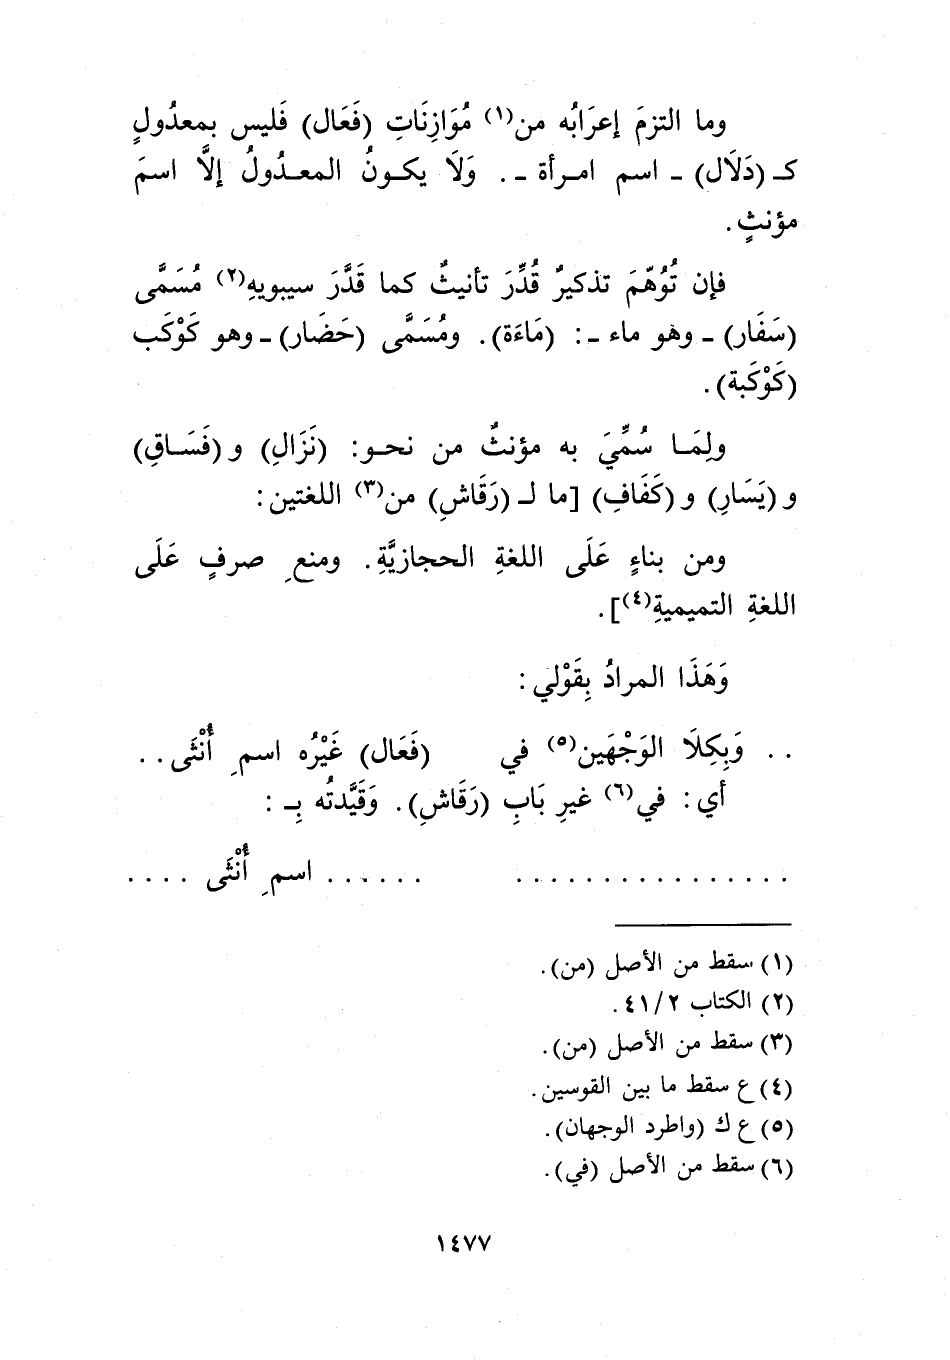 وما التزمَ إعرَابُه من(١) مُوَازِنَاتِ (فَعَال) فَليس بمعدُولٍ
كـ (دَلَال) - اسم امرأة -. وَلَا يكونُ المعدُولُ إلَّا اسمَ
مؤنثٍ.
فإن تُوُهِّمَ تذكيرٌ قُدِّرَ تأنيثٌ كما قَدَّرَ سيبويهِ(٢) مُسَمَّى
(سَفَار) - وهُو ماء -: (مَاءَة). ومُسَمَّى (حَضَار) - وهو كَوْكَب
(كَوْكَبة).
ولِمَا سُمِّيَ به مؤنثٌ من نحو: (نَزَالِ) و (فَسَاقِ)
و (يَسَارِ) و (كَفَافِ) [ما لـ (رَقَاشِ) من(٣) اللغتين:
ومن بناءٍ عَلَى اللغةِ الحجازيَّةِ. ومنعِ صرفٍ عَلَى
اللغةِ التميميةِ(٤)].
وَهَذَا المرادُ بِقَوْلي:
.. وَبِكِلَا الوَجْهَين(٥) في (فَعَال) غَيْرُه اسمِ أُنْثَى..
أي: في(٦) غيرِ بَابِ (رَقَاشِ). وَقَيَّدتُه بِـ:
................ ...... اسمِ أُنْثَى ....
(١) سقط من الأصل (من).
(٢) الكتاب ٢/ ٤١.
(٣) سقط من الأصل (من).
(٤) ع سقط ما بين القوسين.
(٥) ع ك (واطرد الوجهان).
(٦) سقط من الأصل (في).
١٤٧٧